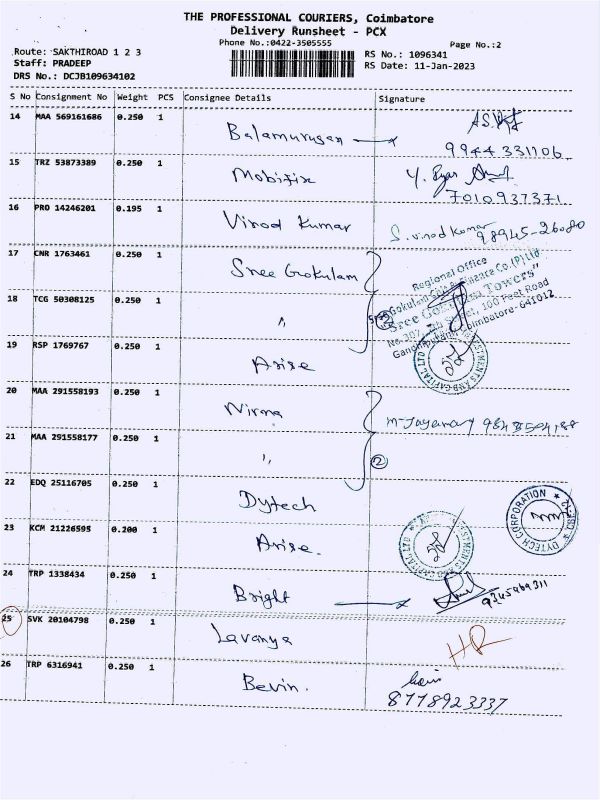 THE PROFESSIONAL COURIERS, Coimbatore
Delivery Runsheet - PCX
Phone No.:0422-3505555
Page No.:2
Route: SAKTHIROAD 1 2 3
Staff: PRADEEP
DRS No.: DCJB109634102
RS No.: 1096341
RS Date: 11-Jan-2023
S No Consignment No Weight PCS Consignee Details Signature
14 MAA 569161686 0.250 1 Balamurugan
9944331106
15 TRZ 53873389 0.250 1 Mobifix
7010937371
16 PRO 14246201 0.195 1 Vinod Kumar S. vinod kumar
98945-26080
17 CNR 1763461 0.250 1 Sree Gokulam
Regional Office
Sree Gokulam Towers"
100 Feet Road
Coimbatore-641012
18 TCG 50308125 0.250 1 "
19 RSP 1769767 0.250 1 Arise
20 MAA 291558193 0.250 1 Nirma
21 MAA 291558177 0.250 1 "
2
22 EDQ 25116705 0.250 1 Dytech
DYTECH CORPORATION
23 KCM 21226595 0.200 1 Arise.
24 TRP 1338434 0.250 1 Bright
9345969311
25 SVK 20104798 0.250 1 Lavanya
26 TRP 6316941 0.250 1 Bevin.
8778923337